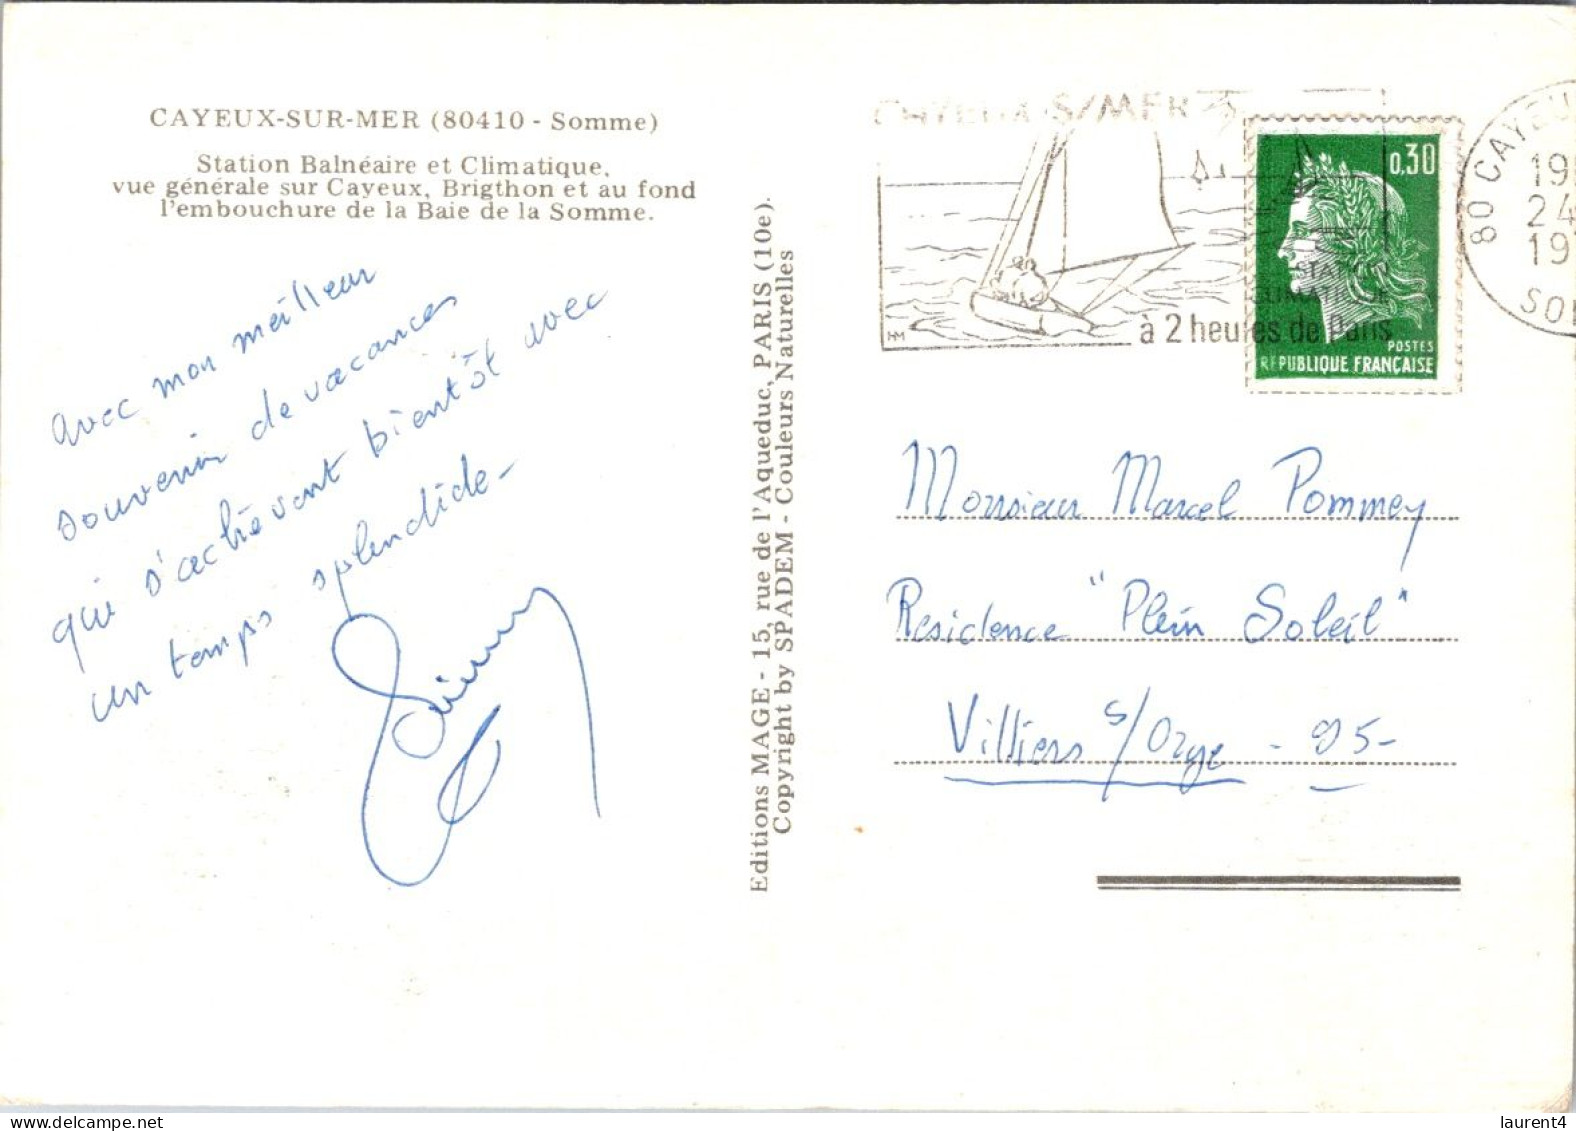 CAYEUX-SUR-MER (80410 - Somme)
Station Balnéaire et Climatique,
vue générale sur Cayeux, Brigthon et au fond
l'embouchure de la Baie de la Somme.
avec mon meilleur
souvenir de vacances
qui s'achèvent bientôt avec
un temps splendide -
Editions MAGE - 15, rue de l'Aqueduc, PARIS (10e).
Copyright by SPADEM - Couleurs Naturelles
CAYEUX-S/MER
STATION
CLIMATIQUE
à 2 heures de Paris
HM
0,30
POSTES
REPUBLIQUE FRANÇAISE
80 CAYEU
19
24
19
SO
Monsieur Marcel Pommey
Residence "Plein Soleil"
Villiers s/Orge - 95 -
laurent4